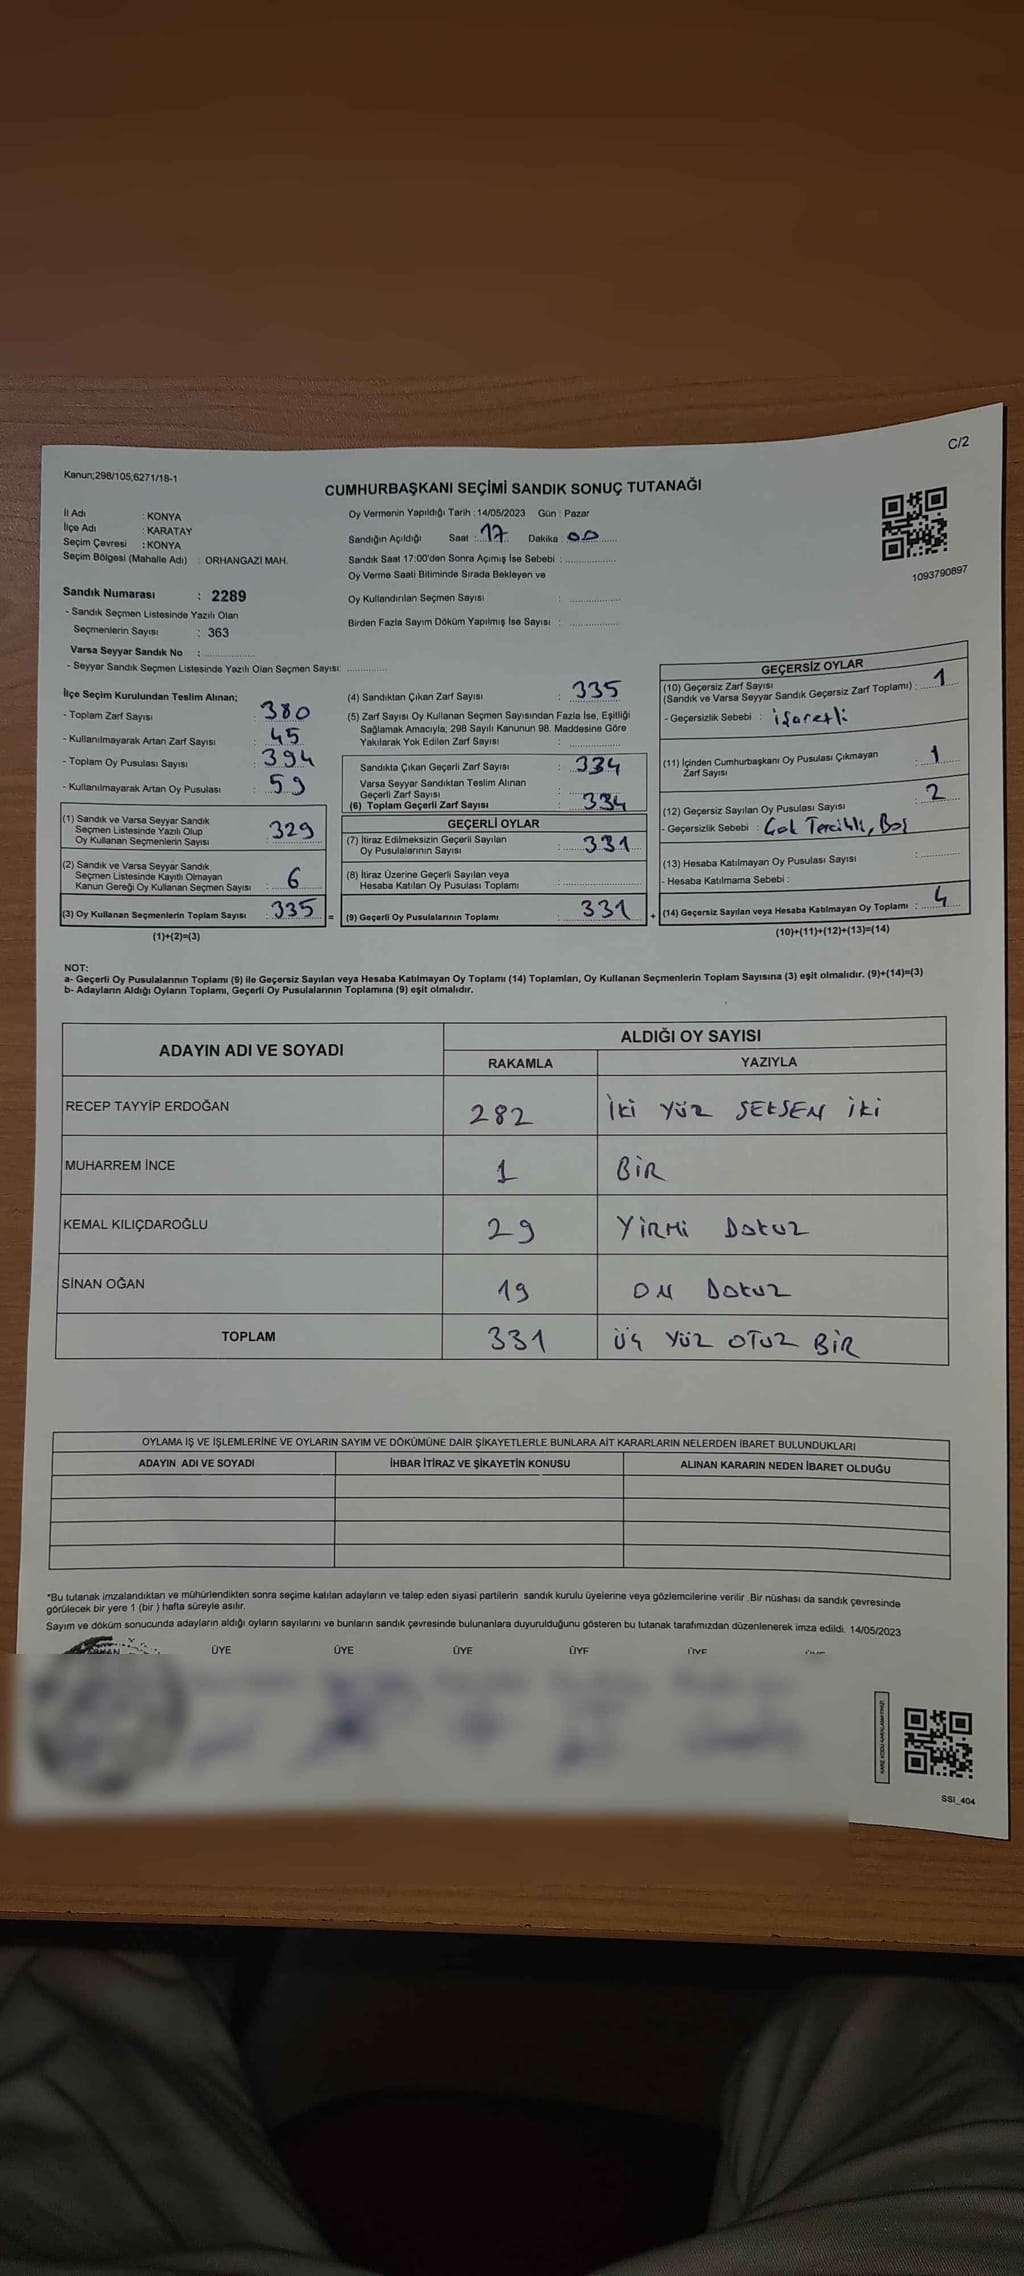 C/2
Kanun;298/105;6271/18-1
CUMHURBAŞKANI SEÇİMİ SANDIK SONUÇ TUTANAĞI
İl Adı : KONYA
İlçe Adı : KARATAY
Seçim Çevresi : KONYA
Seçim Bölgesi (Mahalle Adı) : ORHANGAZİ MAH.
Sandık Numarası : 2289
- Sandık Seçmen Listesinde Yazılı Olan
Seçmenlerin Sayısı : 363
Varsa Seyyar Sandık No : ..............
- Seyyar Sandık Seçmen Listesinde Yazılı Olan Seçmen Sayısı: ............
Oy Vermenin Yapıldığı Tarih : 14/05/2023 Gün : Pazar
Sandığın Açıldığı Saat : 17 Dakika : 00
Sandık Saat 17:00'den Sonra Açımış İse Sebebi : ..............
Oy Verme Saati Bitiminde Sırada Bekleyen ve
Oy Kullandırılan Seçmen Sayısı : ..............
Birden Fazla Sayım Döküm Yapılmış İse Sayısı : ..............
1093790897
İlçe Seçim Kurulundan Teslim Alınan;
- Toplam Zarf Sayısı : 380
- Kullanılmayarak Artan Zarf Sayısı : 45
- Toplam Oy Pusulası Sayısı : 394
- Kullanılmayarak Artan Oy Pusulası : 59
(1) Sandık ve Varsa Seyyar Sandık
Seçmen Listesinde Yazılı Olup
Oy Kullanan Seçmenlerin Sayısı : 329
(2) Sandık ve Varsa Seyyar Sandık
Seçmen Listesinde Kayıtlı Olmayan
Kanun Gereği Oy Kullanan Seçmen Sayısı : 6
(3) Oy Kullanan Seçmenlerin Toplam Sayısı : 335 =
(1)+(2)=(3)
(4) Sandıktan Çıkan Zarf Sayısı : 335
(5) Zarf Sayısı Oy Kullanan Seçmen Sayısından Fazla İse, Eşitliği
Sağlamak Amacıyla; 298 Sayılı Kanunun 98. Maddesine Göre
Yakılarak Yok Edilen Zarf Sayısı : ..............
Sandıkta Çıkan Geçerli Zarf Sayısı : 334
Varsa Seyyar Sandıktan Teslim Alınan
Geçerli Zarf Sayısı : ..............
(6) Toplam Geçerli Zarf Sayısı : 334
GEÇERLİ OYLAR
(7) İtiraz Edilmeksizin Geçerli Sayılan
Oy Pusulalarının Sayısı : 331
(8) İtiraz Üzerine Geçerli Sayılan veya
Hesaba Katılan Oy Pusulası Toplamı : ..............
(9) Geçerli Oy Pusulalarının Toplamı : 331 +
GEÇERSİZ OYLAR
(10) Geçersiz Zarf Sayısı
(Sandık ve Varsa Seyyar Sandık Geçersiz Zarf Toplamı) : 1
- Geçersizlik Sebebi : işaretli
(11) İçinden Cumhurbaşkanı Oy Pusulası Çıkmayan
Zarf Sayısı : 1
(12) Geçersiz Sayılan Oy Pusulası Sayısı : 2
- Geçersizlik Sebebi : Çok Tercihli, Boş
(13) Hesaba Katılmayan Oy Pusulası Sayısı : ..............
- Hesaba Katılmama Sebebi :
(14) Geçersiz Sayılan veya Hesaba Katılmayan Oy Toplamı : 4
(10)+(11)+(12)+(13)=(14)
NOT:
a- Geçerli Oy Pusulalarının Toplamı (9) ile Geçersiz Sayılan veya Hesaba Katılmayan Oy Toplamı (14) Toplamları, Oy Kullanan Seçmenlerin Toplam Sayısına (3) eşit olmalıdır. (9)+(14)=(3)
b- Adayların Aldığı Oyların Toplamı, Geçerli Oy Pusulalarının Toplamına (9) eşit olmalıdır.
ADAYIN ADI VE SOYADI
ALDIĞI OY SAYISI
RAKAMLA YAZIYLA
RECEP TAYYİP ERDOĞAN 282 İKİ YÜZ SEKSEN İKİ
MUHARREM İNCE 1 BİR
KEMAL KILIÇDAROĞLU 29 YİRMİ DOKUZ
SİNAN OĞAN 19 ON DOKUZ
TOPLAM 331 ÜÇ YÜZ OTUZ BİR
OYLAMA İŞ VE İŞLEMLERİNE VE OYLARIN SAYIM VE DÖKÜMÜNE DAİR ŞİKAYETLERLE BUNLARA AİT KARARLARIN NELERDEN İBARET BULUNDUKLARI
ADAYIN ADI VE SOYADI İHBAR İTİRAZ VE ŞİKAYETİN KONUSU ALINAN KARARIN NEDEN İBARET OLDUĞU
*Bu tutanak imzalandıktan ve mühürlendikten sonra seçime katılan adayların ve talep eden siyasi partilerin sandık kurulu üyelerine veya gözlemcilerine verilir .Bir nüshası da sandık çevresinde
görülecek bir yere 1 (bir ) hafta süreyle asılır.
Sayım ve döküm sonucunda adayların aldığı oyların sayılarını ve bunların sandık çevresinde bulunanlara duyurulduğunu gösteren bu tutanak tarafımızdan düzenlenerek imza edildi. 14/05/2023
ÜYE ÜYE ÜYE ÜYE ÜYE ÜYE
SSI_404